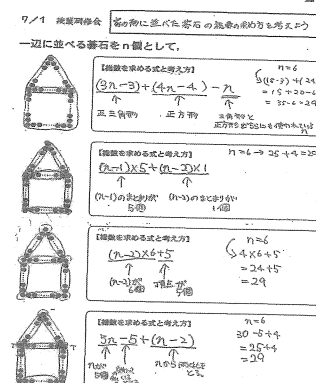 7/1 授業研修会 家の形に並べた碁石の総数の求め方を考えよう
一辺に並べる碁石をn個として,
【総数を求める式と考え方】
(3n-3)+(4n-4)-n
正三角形 正方形 三角形と
正方形
n=6
=15+20-6
=35-6=29
【総数を求める式と考え方】
(n-1)×5+(n-2)×1
(n-1)のまとまりが (n-2)のまとまりが
5個 1個
n=6→25+4=29
【総数を求める式と考え方】
(n-2)×6+5
(n-2)が 頂点が
6個 5個
n=6
4×6+5
=24+5
=29
【総数を求める式と考え方】
5n-5+(n-2)
nが
5個
nから
とる。
n=6
30-5+4
=25+4
=29